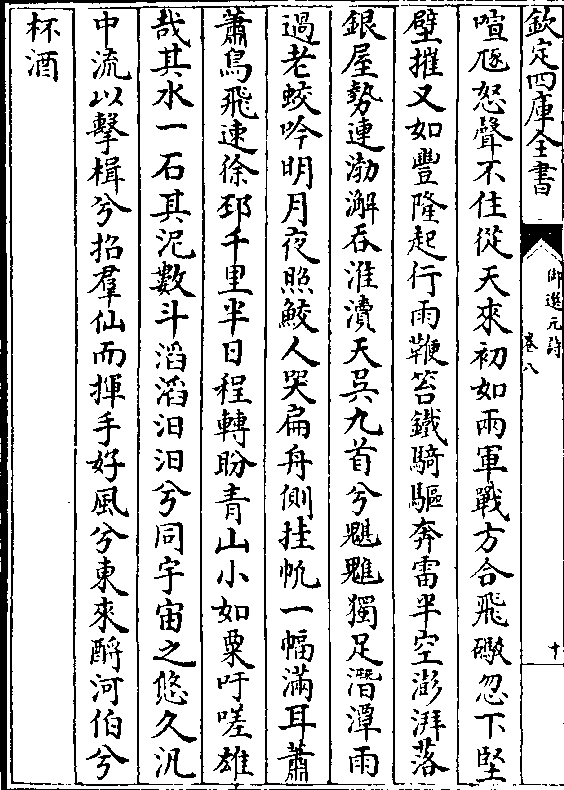 欽定四庫全書
御選元詩
卷八
十
喧豗怒聲不住從天來初如兩軍戰方合飛礮忽下堅
壁摧又如豐隆起行雨鞭笞鐵騎驅奔雷半空澎湃落
銀屋勢連渤澥吞淮瀆天吳九首兮魌魋獨足潛潭雨
過老蛟吟明月夜照鮫人哭扁舟側挂帆一幅滿耳蕭
蕭鳥飛速徐邳千里半日程轉盼青山小如粟吁嗟雄
哉其水一石其泥數斗滔滔汩汩兮同宇宙之悠久汎
中流以擊楫兮招羣仙而揮手好風兮東來酹河伯兮
杯酒